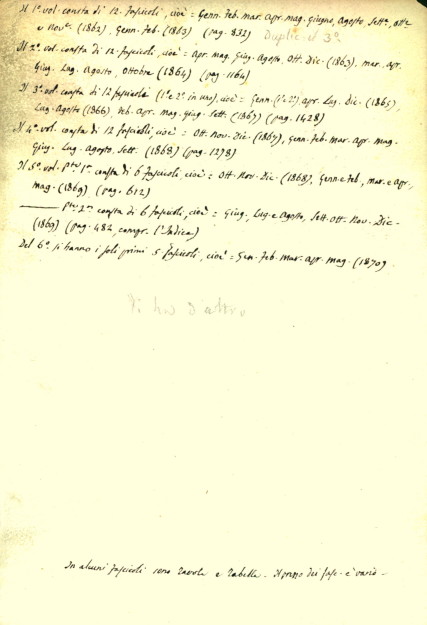 Il 1º. vol. consta di 12. fascicoli, cioè = Genn. Feb. mar. apr. mag. giugno, Agosto Settº. ottº.
e Novº. (1862), Genn. Feb. (1863) (pag. 832) Duplic. il 3º.
Il 2º. vol. consta di 12 fascicoli, cioè = apr. mag. Giug. Agosto, Ott. Dic. (1863), mar. apr.
Giug. Lug. Agosto, Ottobre (1864) (pag. 1164)
Il 3º vol. consta di 12 fascicoli (1º e 2º in uno), cioè = Genn. (1º 2º) apr. Lug. Dic. (1865),
Lug. Agosto (1866) Feb. apr. mag. Giug. Sett. (1867) (pag. 1428)
Il 4º. vol. consta di 12 fascicoli, cioè = Ott. Nov. Dic. (1867), Genn. Feb. mar. apr. mag.
Giug. Lug. Agosto, Sett. (1868) (pag. 1278)
Il 5º. vol. pte 1ª consta di 6 fascicoli, cioè = Ott. Nov. Dic. (1868), Genn. e Feb, mar. e apr.,
mag. (1869) (pag. 612)
——— pte 2ª consta di 6 fascicoli, cioè = Giug, Lug. e Agosto, Sett. Ott. Nov. Dic.
(1869) (pag. 482, compr. l'Indice)
Del 6º. si hanno i soli primi 5 fascicoli, cioè = Gen. Feb. Mar. apr. mag. (1870)
Vi ha d'altro
In alcuni fascicoli sono tavole e tabelle. Il prezzo dei fasc. è vario.